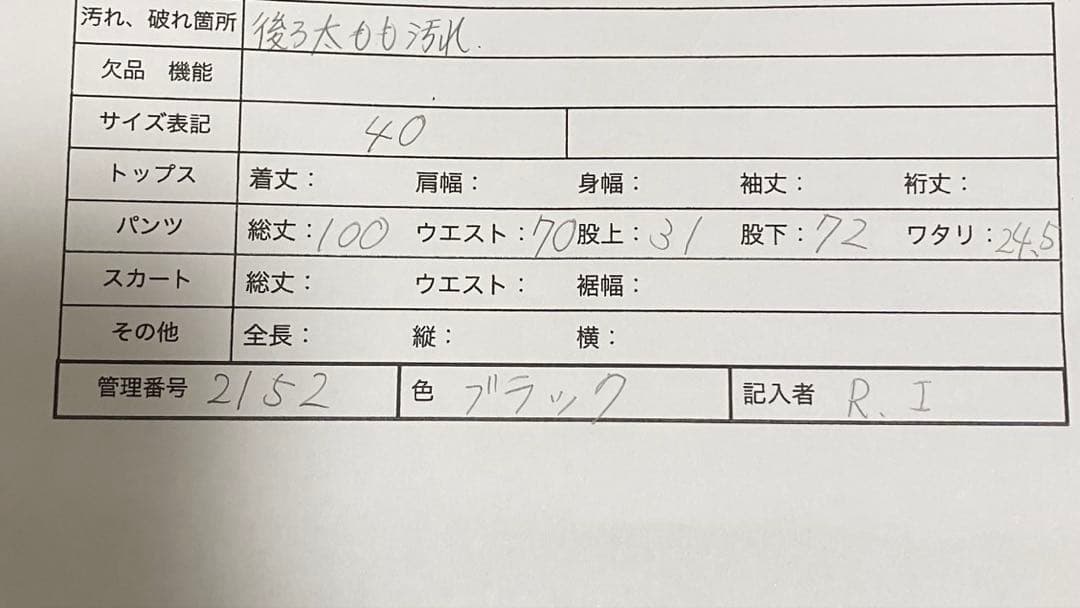 汚れ、破れ箇所 後ろ太もも汚れ.
欠品 機能
サイズ表記 40
トップス 着丈： 肩幅： 身幅： 袖丈： 裄丈：
パンツ 総丈：100 ウエスト：70 股上：31 股下：72 ワタリ：24.5
スカート 総丈： ウエスト： 裾幅：
その他 全長： 縦： 横：
管理番号 2152 色 ブラック 記入者 R. I